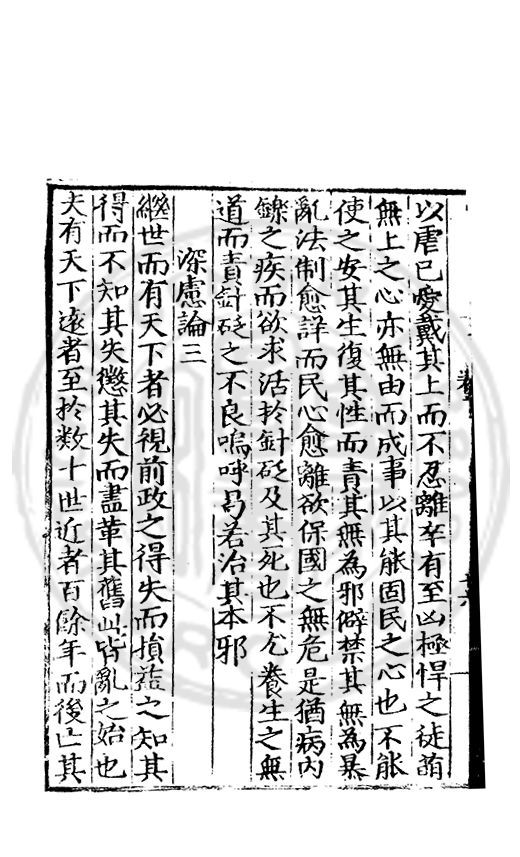 以虐已愛戴其上而不忍離卒有至凶極悍之徒誚
無上之心亦無由而成事以其能固民之心也不能
使之安其生復其性而責其無為邪僻禁其無為暴
亂法制愈詳而民心愈離欲保國之無危是猶病內
鑠之疾而欲求活於針砭及其死也不尤養生之無
道而責針砭之不良嗚呼曷若治其本邪
深慮論三
繼世而有天下者必視前政之得失而損益之知其
得而不知其失懲其失而盡革其舊此皆亂之始也
夫有天下遠者至於數十世近者百餘年而後亡其